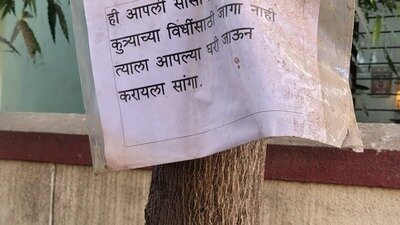 ही आपली सोसा
कुत्र्याच्या विधींसाठी जागा नाही
त्याला आपल्या घरी जाऊन
करायला सांगा.